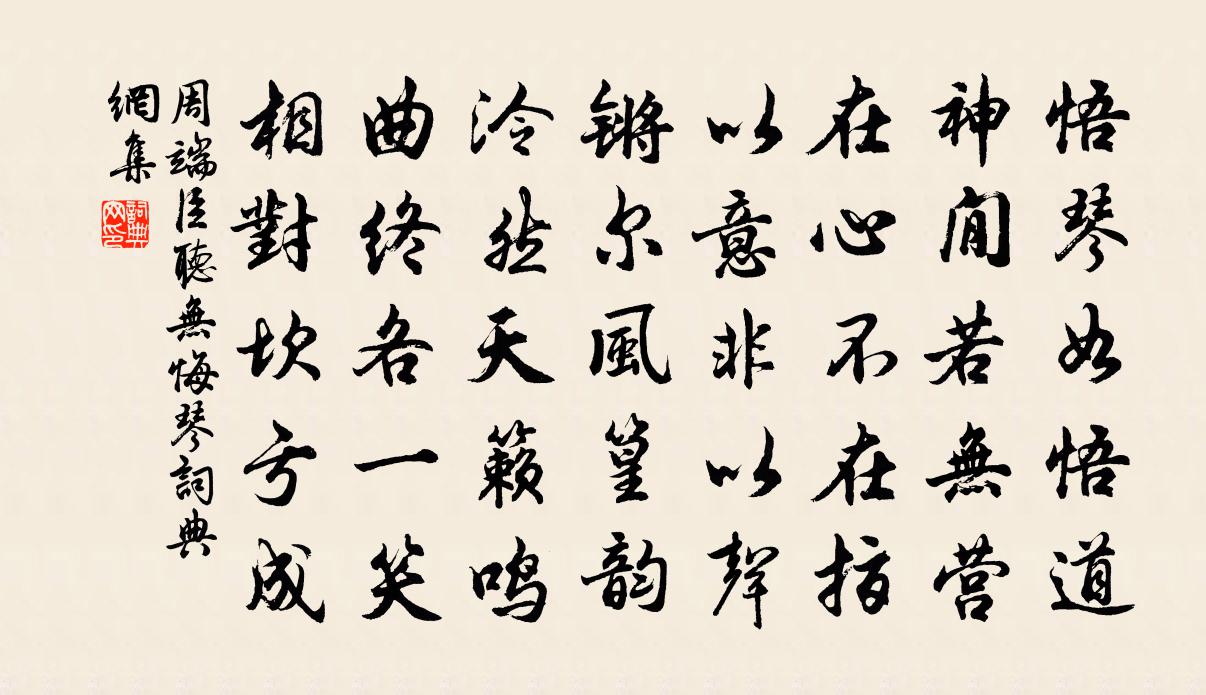 悟琴如悟道
神閒若無营
在心不在指
以意非以聲
锵尔風篁韵
泠然天籁鸣
曲终各一笑
相對坎亏成
周端臣聽無悔琴詞典
網集
詞典
网印